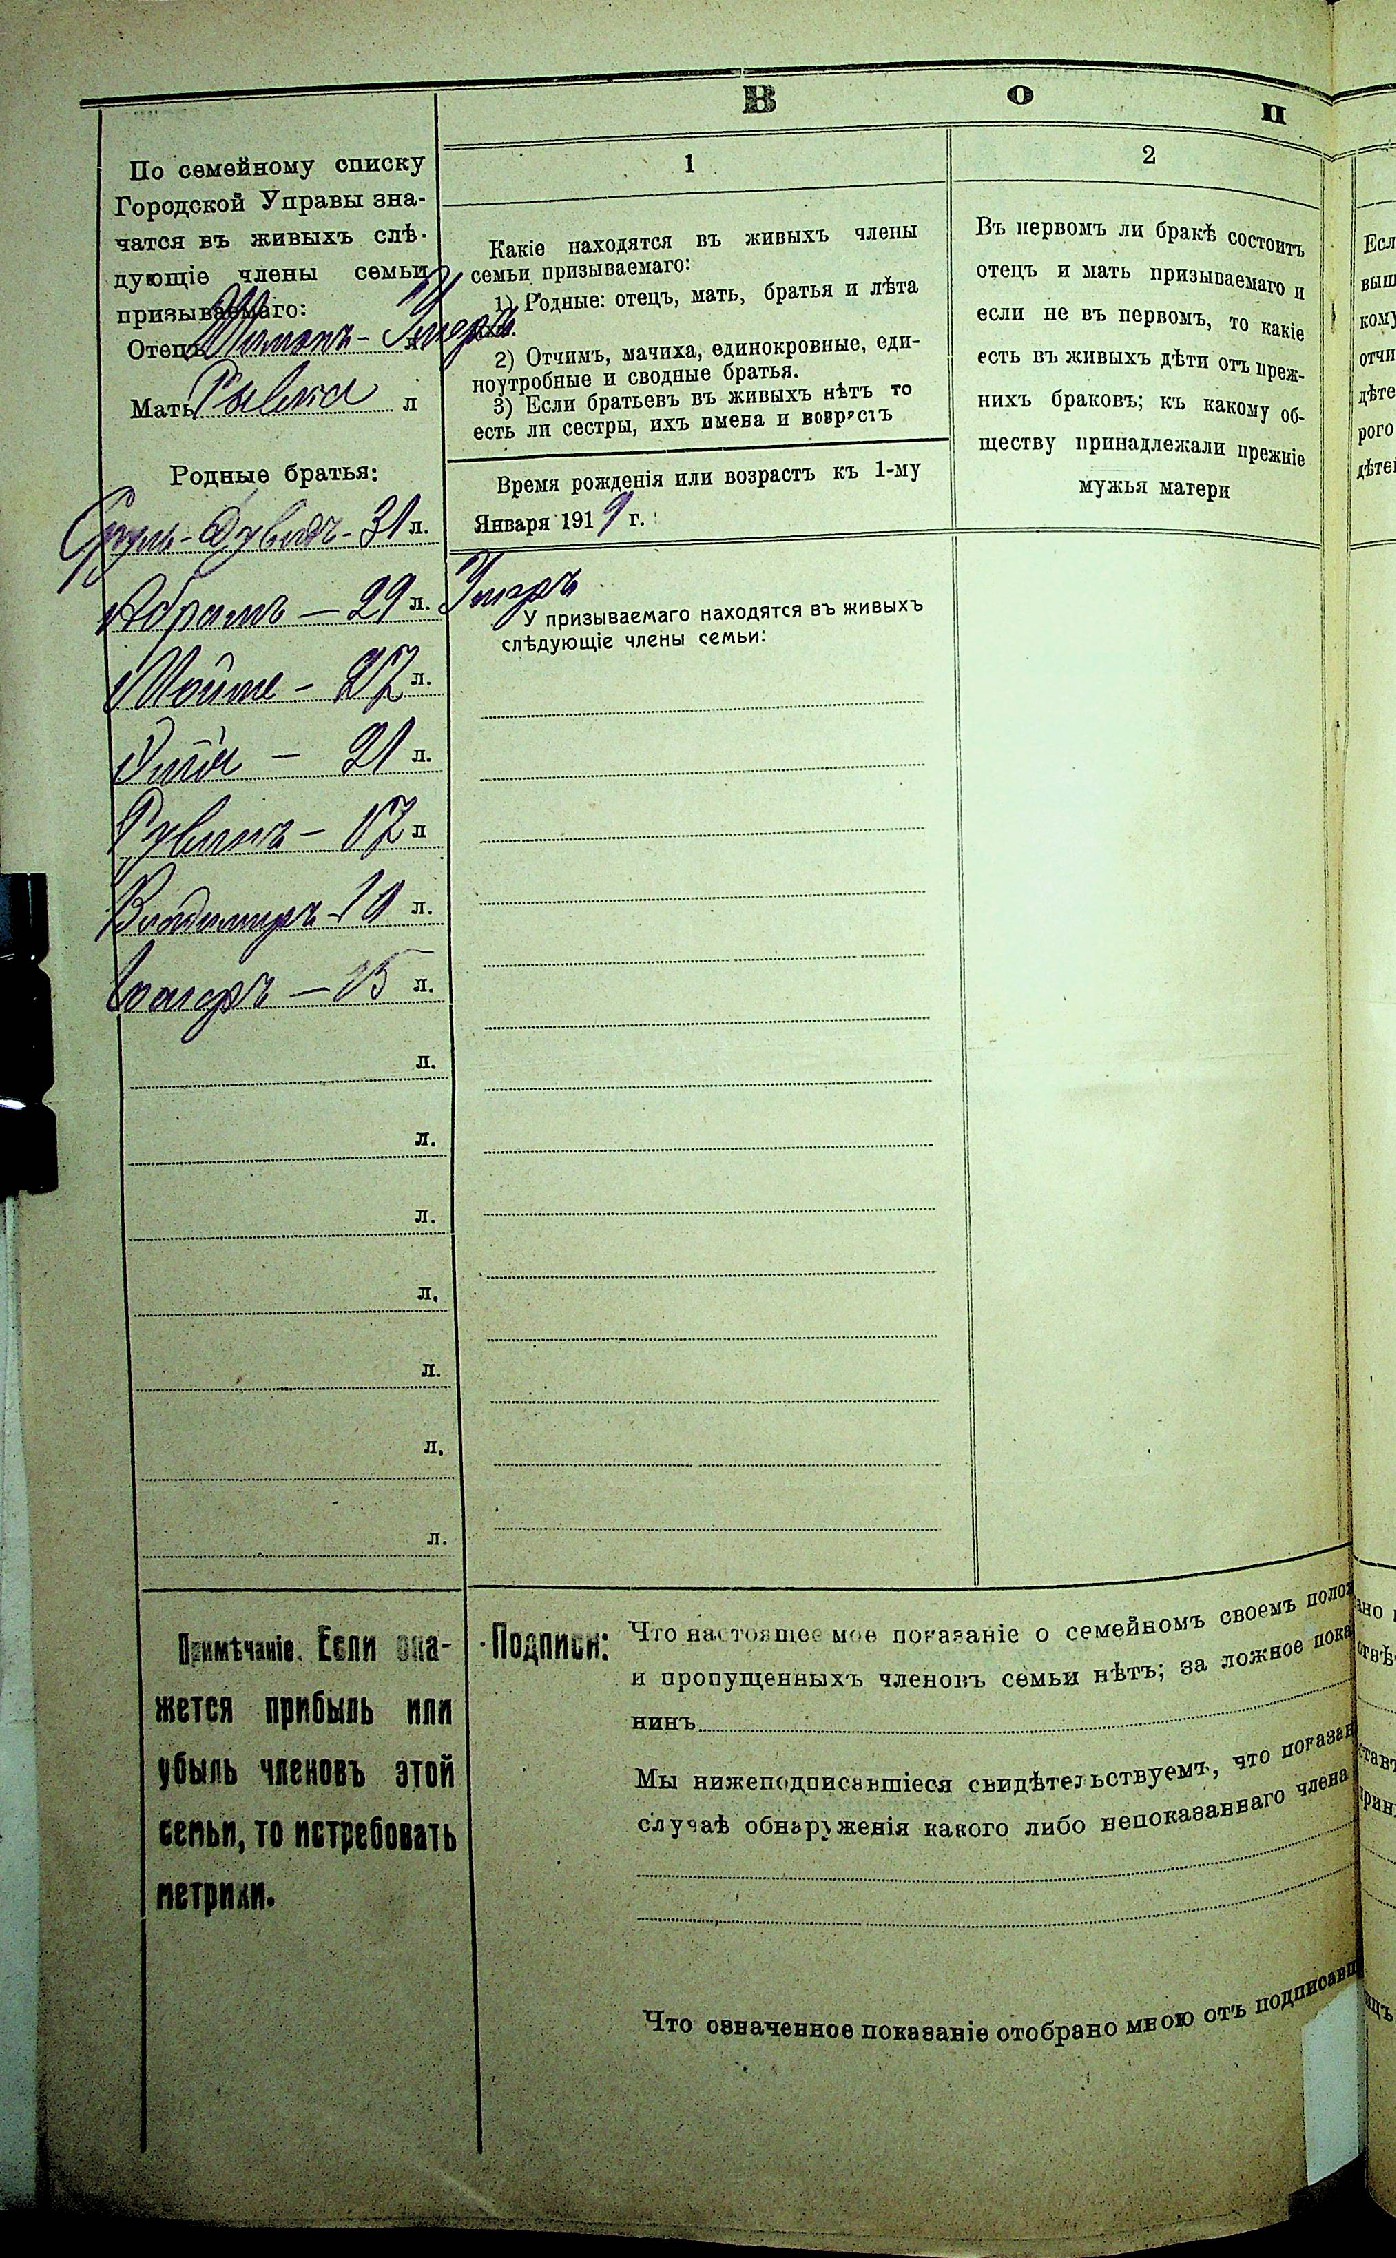 В о п
По семейному списку
Городской Управы зна-
чатся въ живыхъ слѣ-
дующіе члены семьи
призываемаго:
Отецъ Шимонъ - Умеръ
Мать Рывка л
Родные братья:
Сруль-Дувидъ - 31 л.
Абрамъ — 29 л.
Мойше - 27 л.
21 л.
Рувинъ - 17 л
Владимиръ - 19 л.
15 л.
л.
л.
л.
л.
л.
л.
л.
Примѣчаніе. Если ока-
жется прибыль или
убыль членовъ этой
семьи, то истребовать
метрики.
1
Какіе находятся въ живыхъ члены
семьи призываемаго:
1) Родные: отецъ, мать, братья и лѣта
ихъ.
2) Отчимъ, мачиха, единокровные, еди-
ноутробные и сводные братья.
3) Если братьевъ въ живыхъ нѣтъ то
есть ли сестры, ихъ имена и возрастъ
Время рожденія или возрастъ къ 1-му
Января 1919 г.
Умеръ
У призываемаго находятся въ живыхъ
слѣдующіе члены семьи:
2
Въ первомъ ли бракѣ состоитъ
отецъ и мать призываемаго и
если не въ первомъ, то какіе
есть въ живыхъ дѣти отъ преж-
нихъ браковъ; къ какому об-
ществу принадлежали прежніе
мужья матери
Подписи:
Что настоящее мое показаніе о семейномъ своемъ полож
и пропущенныхъ членовъ семьи нѣтъ; за ложное пока
нинъ
Мы нижеподписавшіеся свидѣтельствуемъ, что показан
случаѣ обнаруженія какого либо непоказаннаго члена
Что означенное показаніе отобрано мною отъ подписавш
Есл
выш
кому
отчи
дѣте
рого
дѣтей